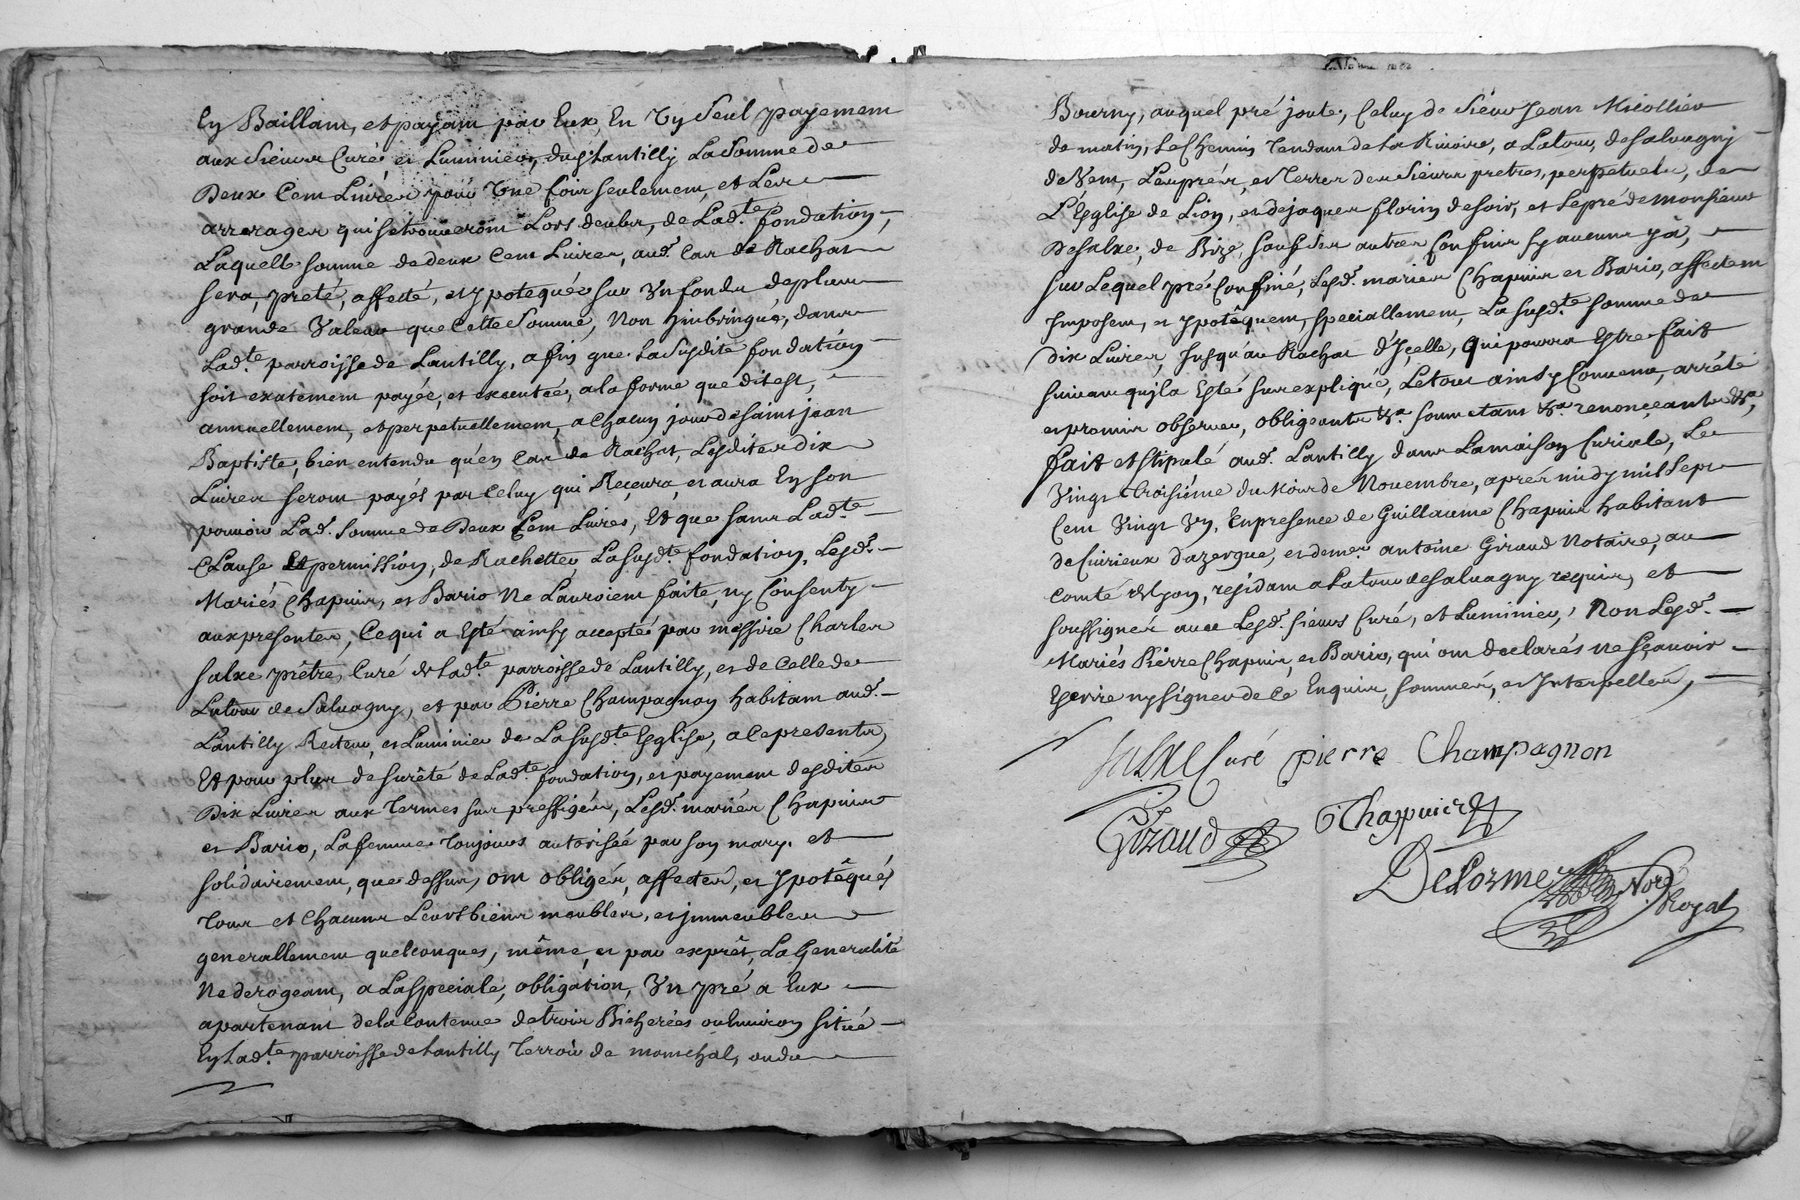 En Baillant, et payant par Eux, En Un Seul payement
aux Sieurs Curé et Luminier, dud Lantilly La Somme de
Deux Cent Livres pour Une foix seulement, et Les
arrerages qui se trouveront Lors deubs, de Lad.te fondation,
Laquelle somme de deux Cent Livres, aud. Cas de Rachat
sera, preté, affecté, et ypotequée sur Un fonds de plus
grande Valeur que Cette Somme, Non hinbringué, dans
Lad.te parroisse de Lantilly, a fin que La Susdite fondation
soit exatement payée, et executée, a la forme que dit est,
annuellement, et perpetuellement, a Chacun jour de saint jean
Baptiste, bien entendu qu'en Cas de Rachat, Lesdites dix
Livres seront payés par Celuy qui Reçeura, et aura En son
pouvoir Lad. Somme de Deux Cent Livres, Et que sans Lad.te
Clause Et permission, de Rachetter La susd.te fondation, Lesd.
Mariés Chapuis, et Bario Ne L'auroient faite, ny Consenty
aux presentes, Ce qui a Esté ainsy accepté par messire Charles
Salxe prêtre, Curé de Lad.te parroisse de Lantilly, et de Celle de
Latour de Salvagny, et par Pierre Champagnon habitant aud.
Lantilly Recteur, et Luminier de La susd.te Eglise, a Ce presents,
Et pour plus de surêté de Lad.te fondation, et payement desdites
Dix Livres aux Termes sus preffigés, Lesd. mariés Chapuis
et Bario, La femme Toujours autorisée par son mary, et
solidairement, que dessus, ont obligés, affectés, et Ypotêqués
Tous et Chacuns Leurs biens meubles, et jmmeubles
generallement quelconques, même, et par exprés, La Generalité
Ne derogeant, a La speciale, obligation, Un pré a Eux
apartenant de la Contenue de trois Bicherées ou Environ situé
En Lad.te parroisse de Lantilly Terroir de montchal, ou du
Bourny, auquel pré joute, Celuy de Sieur Jean Micollier
de matin, Le Chemin Tendant de La Riuoire, a Latour, de Salvagny
de Vent, Les prés, et Terres des Sieurs pretres, perpetuels, de
L'Eglise de Lion, et de jaques florin de soir, et Le pré de monsieur
De Salxe, de Bize, sauf ses autres Confins sy aucuns y a,
sur Lequel pré Confiné, Lesd. mariés Chapuis et Bario, affectent
Imposent, et Ypotêquent, speciallement, La susd.te somme de
dix Livres, Jusqu'au Rachat d'Içelle, qui pourra Estre fait
suivant qu'il a Esté sus expliqué, Le tout ainsy Convenu, arrété
et promis observer, obligeants &.a soumettans &.a renonçeants &.a,
fait et stipulé aud. Lantilly dans La maison Curiale, Le
Vingt troisiéme du Mois de Novembre, aprés midy mil Sept
Cent Vingt Un, En presence de Guillaume Chapuis habitant
de Civrieux d'azergue, et de me. antoine Giraud Notaire, au
Comté de Lyon, residant a Latour de Salvagny requis, et
soussignés avec Lesd. sieurs Curé, et Luminier, Non Lesd.
Mariés Pierre Chapuis, et Bario, qui ont declarés ne sçavoir
Escrire ny signer de Ce Enquis, sommés, et Interpellés,
Salxe Curé pierre Champagnon
Giraud
GChappuict
DeLorme
Nore
Royal